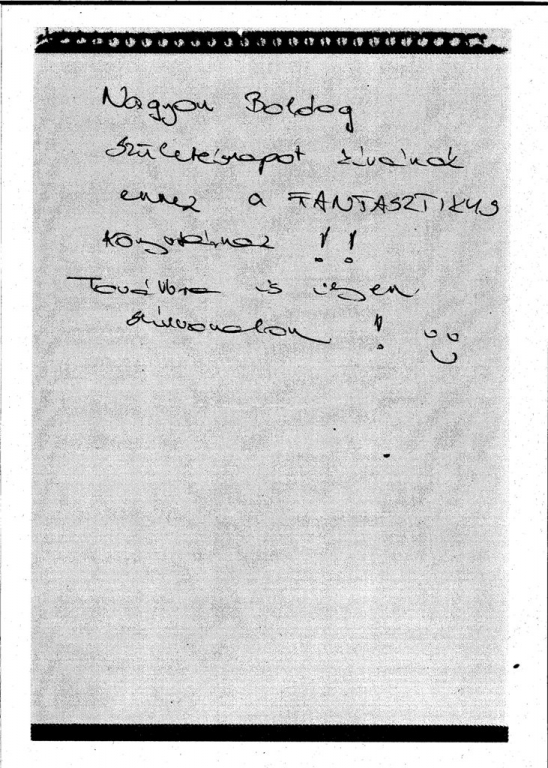 Nagyon Boldog
születésnapot kívánok
ennek a FANTASZTIKUS
Könyvtárnak !!
Továbbra is ilyen
színvonalon !